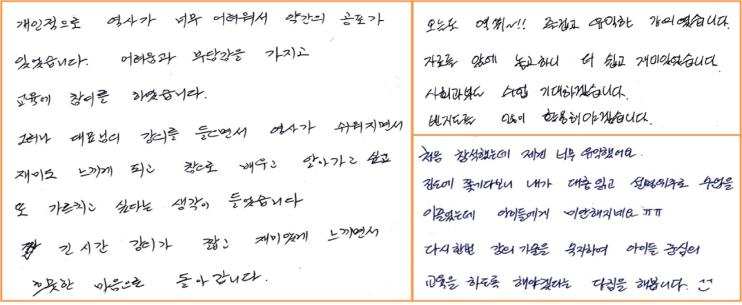 개인적으로 역사가 너무 어려워서 약간의 공포가
있었습니다. 어려움과 부담감을 가지고
교육에 참여를 하였습니다.
그러나 대표님의 강의를 들으면서 역사가 쉬워지면서
재미도 느끼게 되고 참으로 배우고 알아가고 싶고
또 가르치고 싶다는 생각이 들었습니다
긴 시간 강의가 짧고 재미있게 느끼면서
뿌듯한 마음으로 돌아갑니다.
오늘도 역쒸~!! 즐겁고 유익한 강의였습니다.
자료를 앞에 놓고하니 더 쉽고 재미있었습니다.
사회과부도 수업 기대하겠습니다.
백지도를 많이 활용해야겠습니다.
처음 참석했는데 제게 너무 유익했어요.
진도에 쫓기다보니 내가 대충 읽고 설명위주로 수업을
이끌었는데 아이들에게 미안해지네요 ㅠㅠ
다시한번 강의 기술을 숙지하여 아이들 중심의
교육을 하도록 해야겠다는 다짐을 해봅니다.